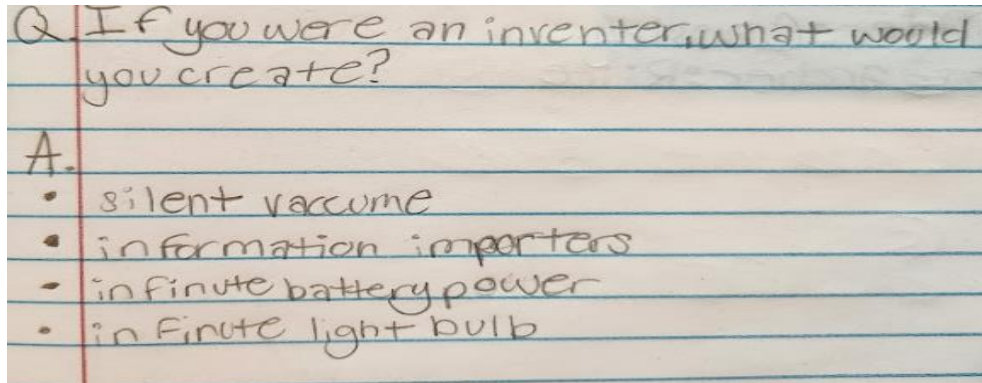 Q. If you were an inventer, what would
you create?
A.
• silent vaccume
• information importers
• infinute battery power
• infinute light bulb